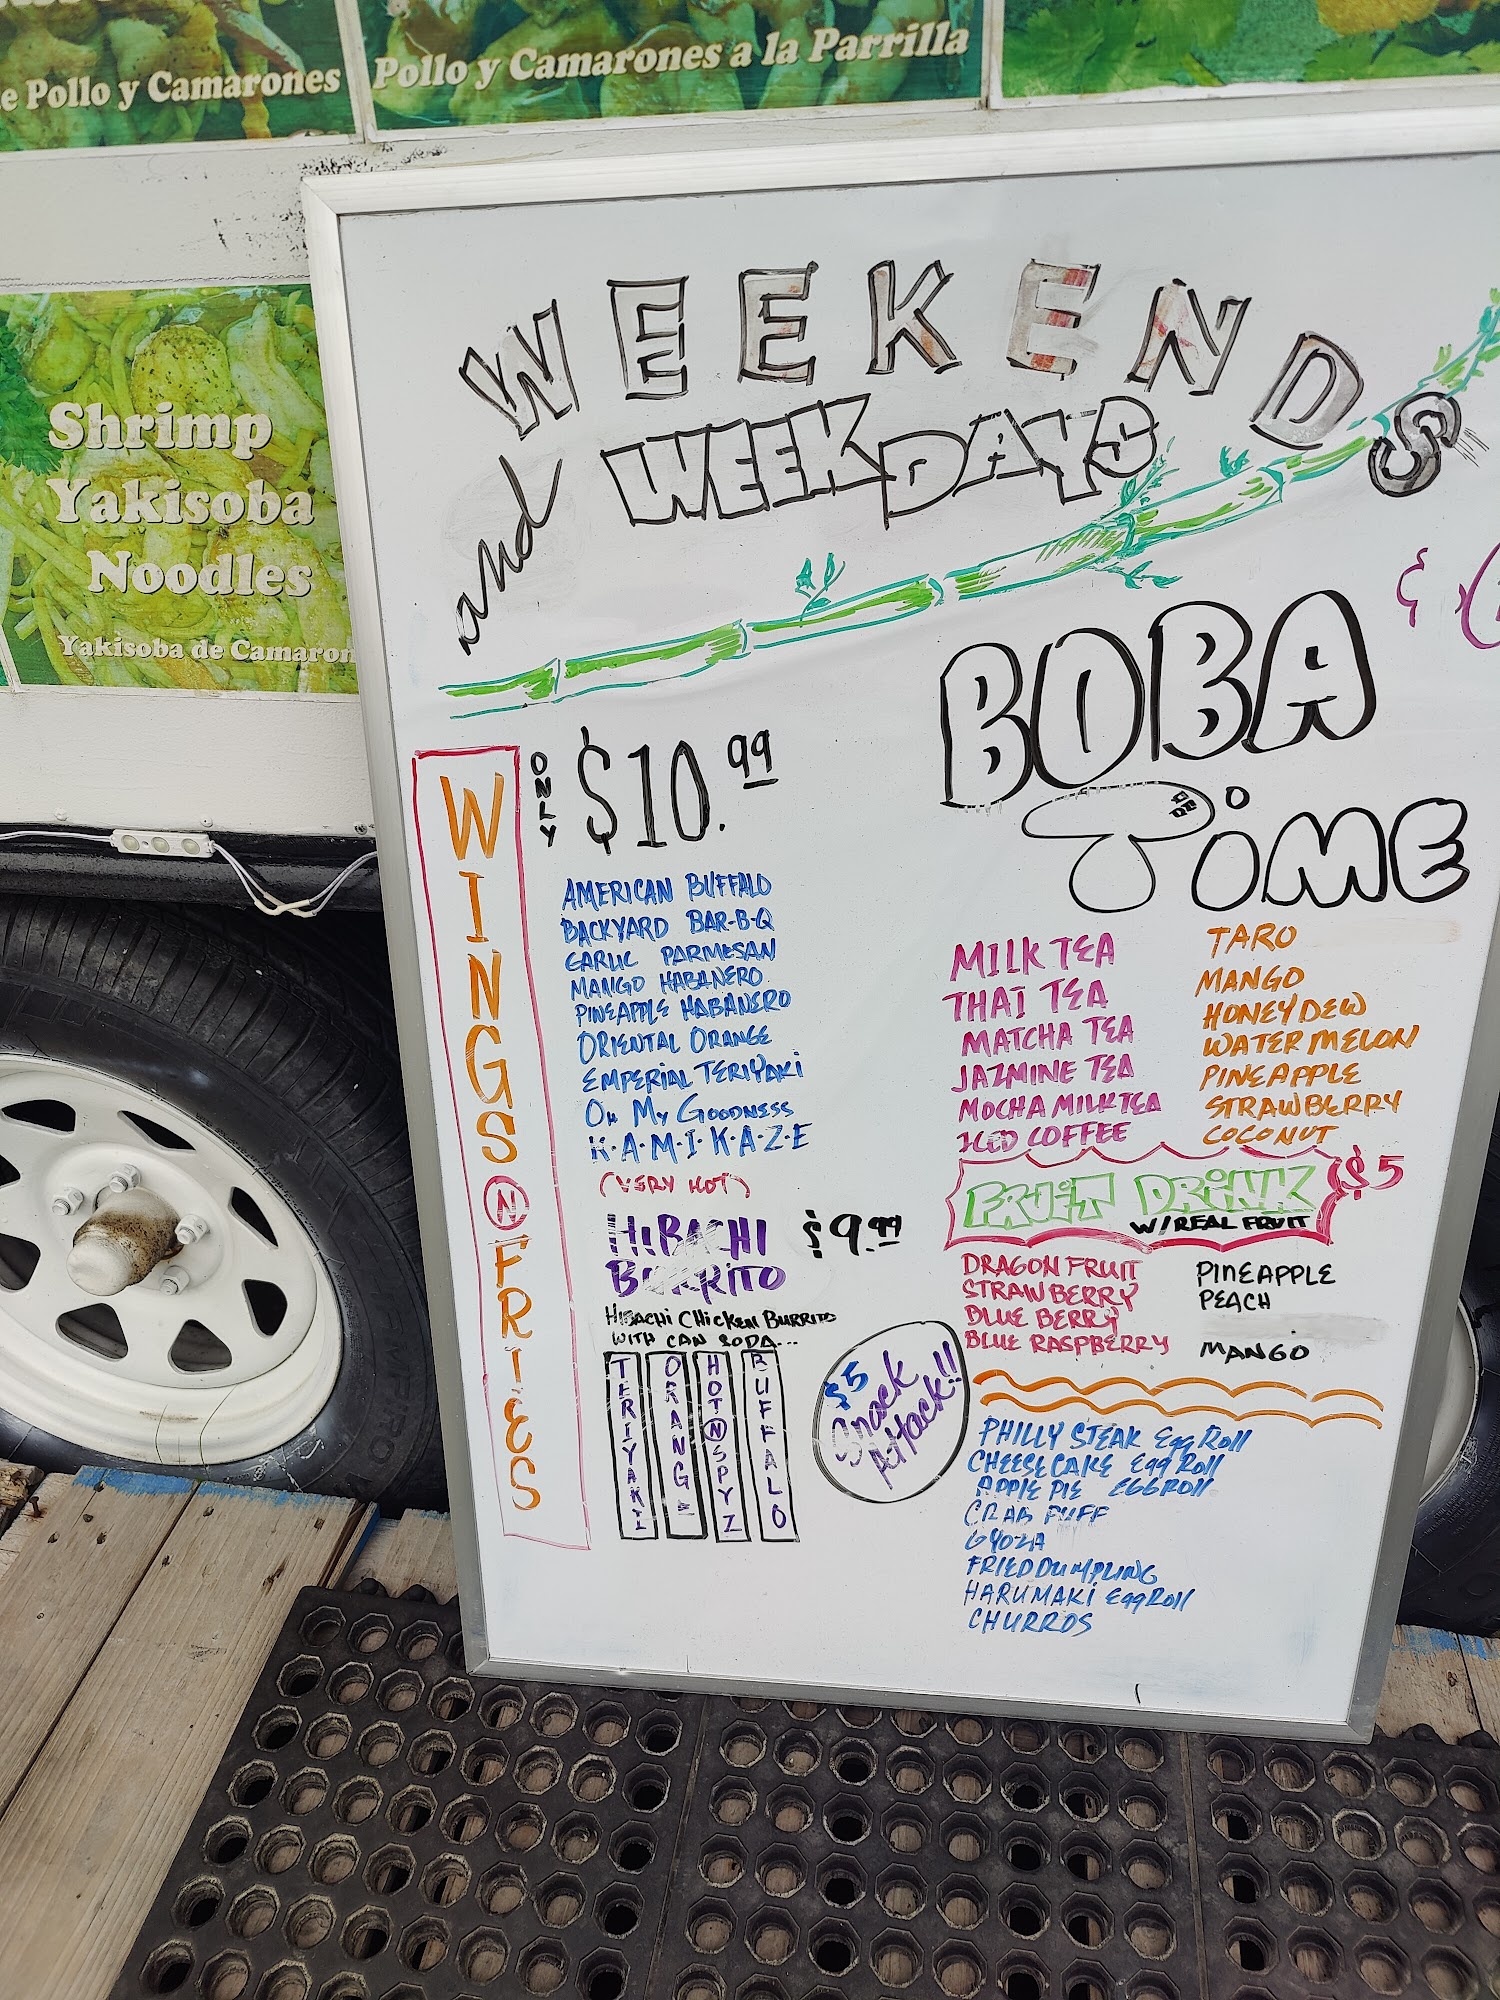 e Pollo y Camarones
Pollo y Camarones a la Parrilla
Shrimp
Yakisoba
Noodles
Yakisoba de Camaron
WEEKENDS
and WEEKDAYS
WINGS N FRIES
ONLY $10.99
AMERICAN BUFFALO
BACKYARD BAR-B-Q
GARLIC PARMESAN
MANGO HABANERO
PINEAPPLE HABANERO
ORIENTAL ORANGE
EMPERIAL TERIYAKI
OH MY GOODNESS
K·A·M·I·K·A·Z·E
(VERY HOT)
HIBACHI $9.99
BURRITO
HIBACHI CHICKEN BURRITO
WITH CAN SODA...
TERIYAKI
ORANGE
HOT N SPYZ
BUFFALO
&
BOBA
TIME
MILK TEA
THAI TEA
MATCHA TEA
JAZMINE TEA
MOCHA MILK TEA
ICED COFFEE
TARO
MANGO
HONEYDEW
WATERMELON
PINEAPPLE
STRAWBERRY
COCONUT
FRUIT DRINK $5
W/REAL FRUIT
DRAGON FRUIT
STRAWBERRY
BLUE BERRY
BLUE RASPBERRY
PINEAPPLE
PEACH
MANGO
$5
Snack
Attack!!
PHILLY STEAK Egg Roll
CHEESECAKE Egg Roll
APPLE PIE EGGROLL
CRAB PUFF
GYOZA
FRIED DUMPLING
HARUMAKI Egg Roll
CHURROS